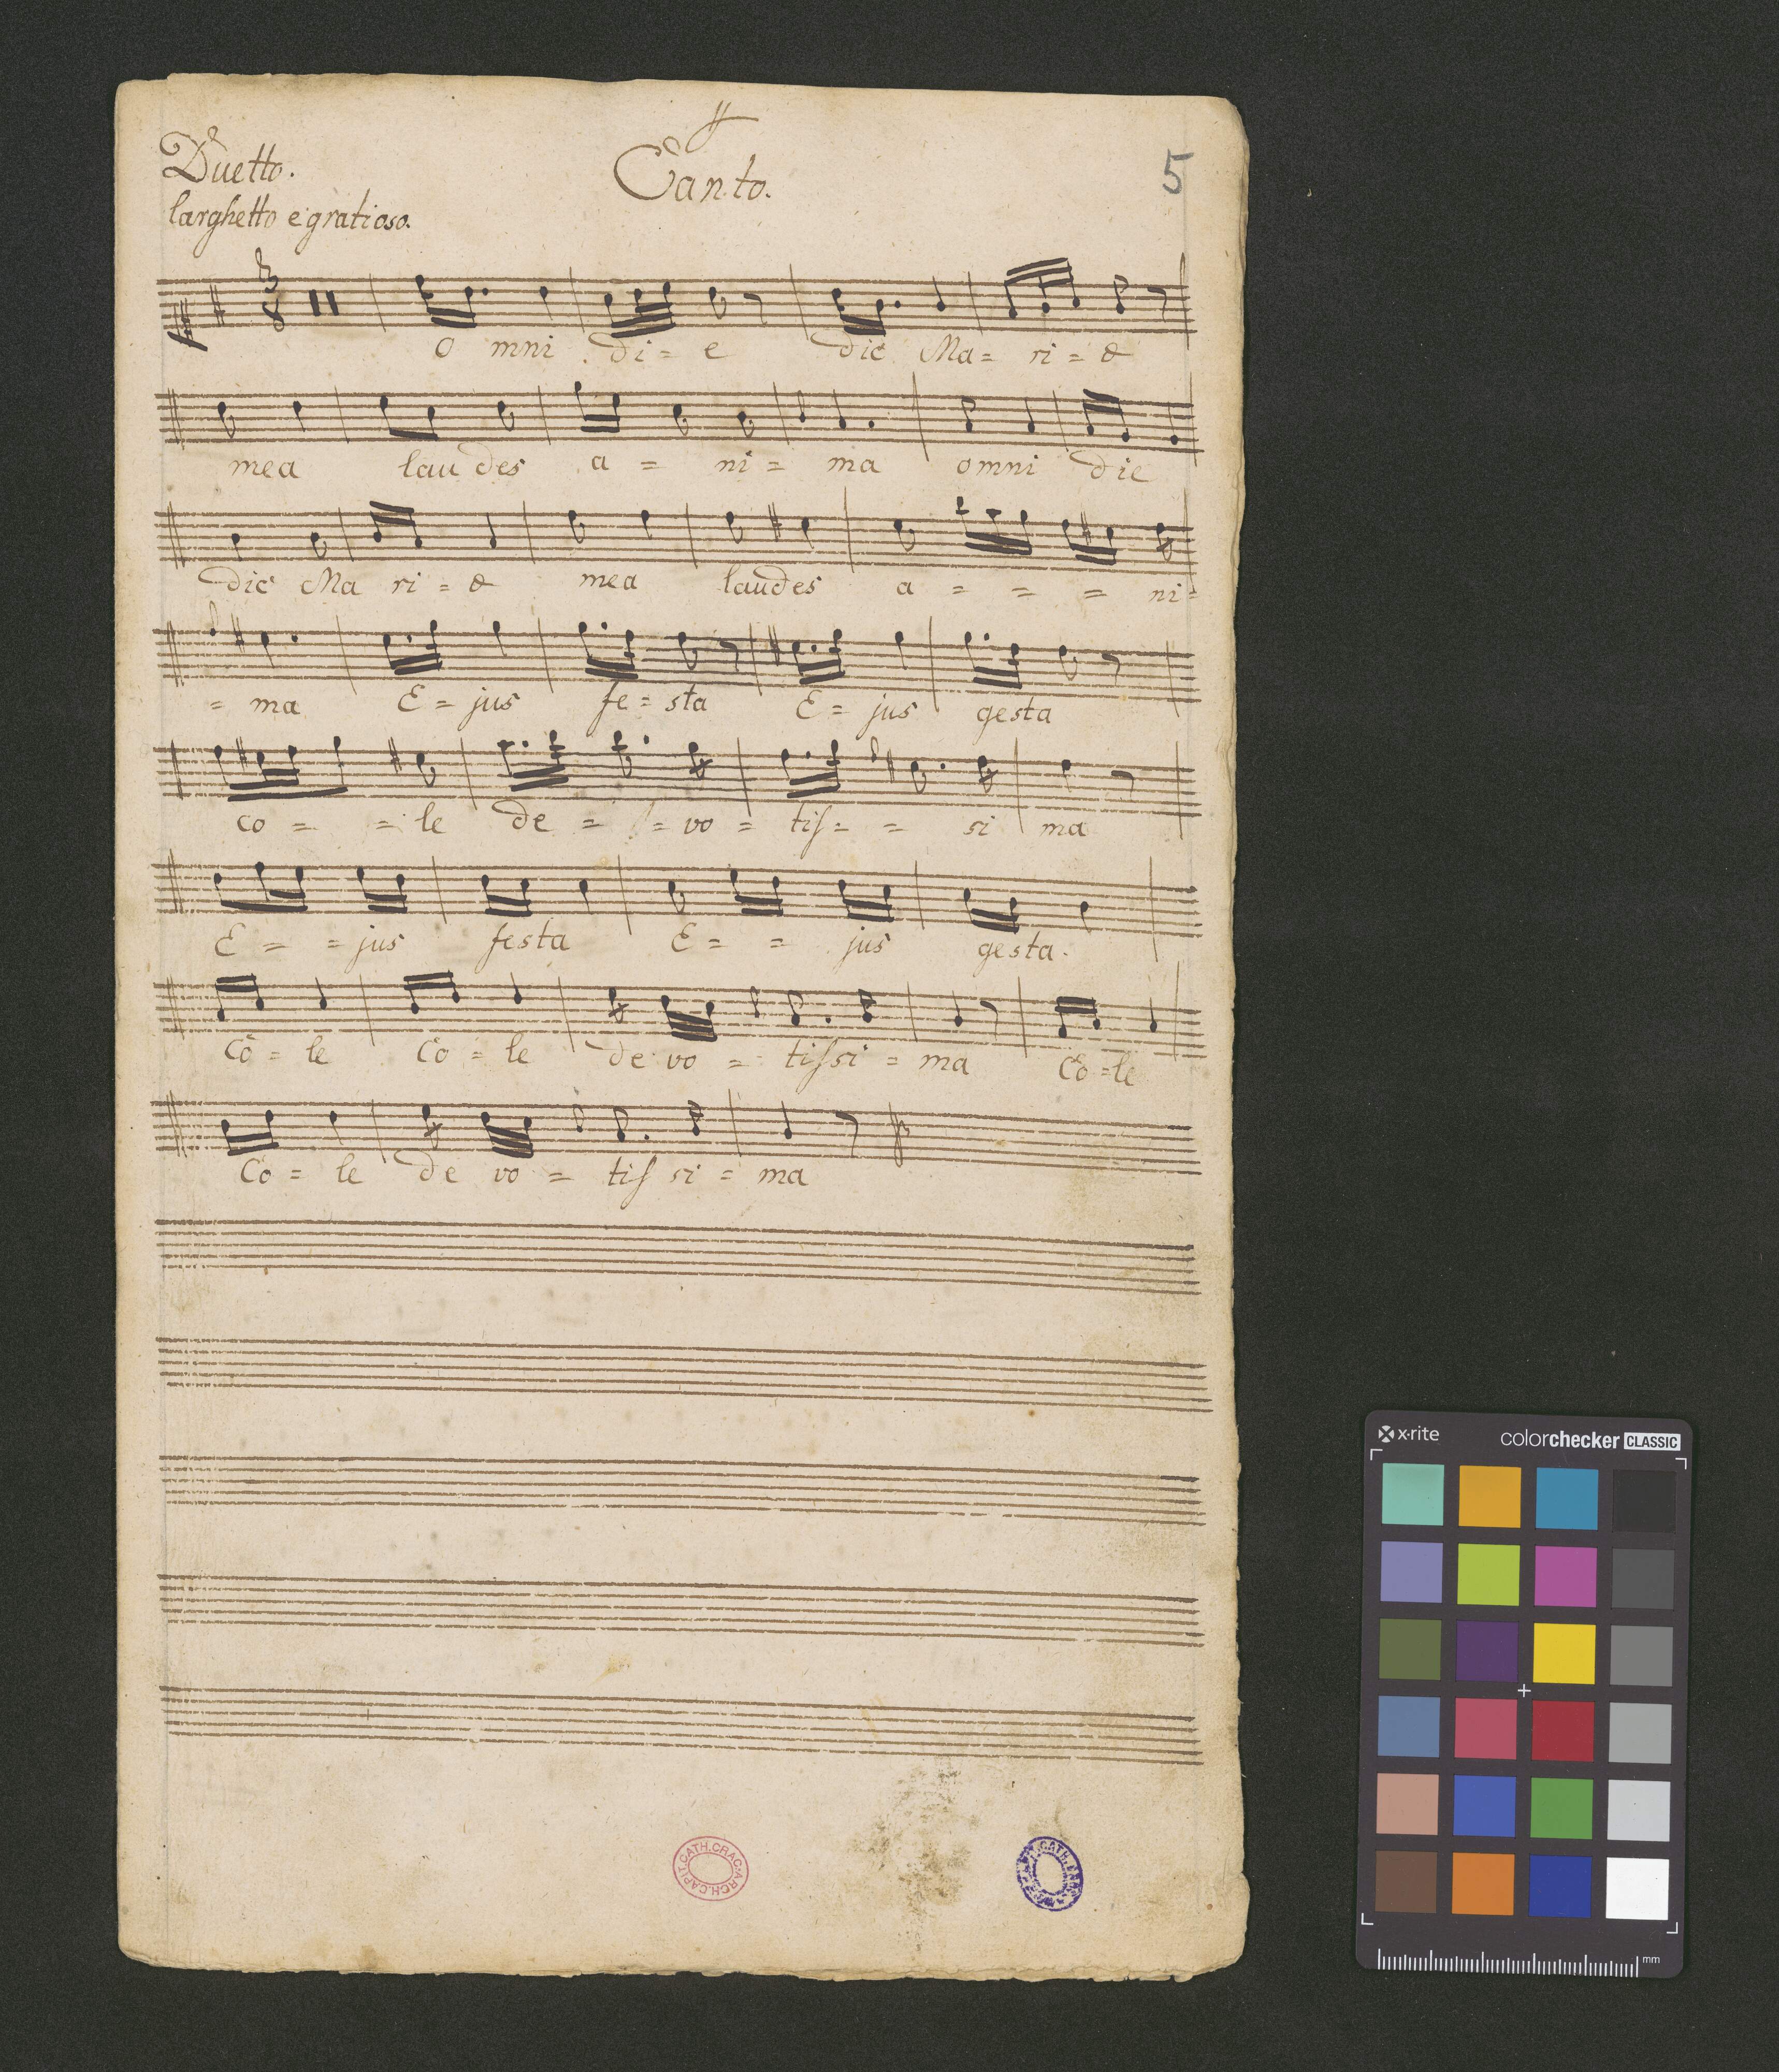 Duetto.
Canto.
5
larghetto e gratioso.
3
8
O mni di = e dic Ma = ri = æ
mea lau des a = ni = ma omni die
dic Ma ri = æ mea laudes a = = = ni =
= ma E = jus fe = sta E = jus gesta
co = = le de = = vo = tiſ = = si ma
E = = jus festa E = = jus gesta.
Co = le Co = le de vo = tiſsi = ma Co = le
Co = le de vo = tiſ si = ma
ARCH. CAPIT. CATH. CRAC.
x-rite
colorchecker CLASSIC
mm